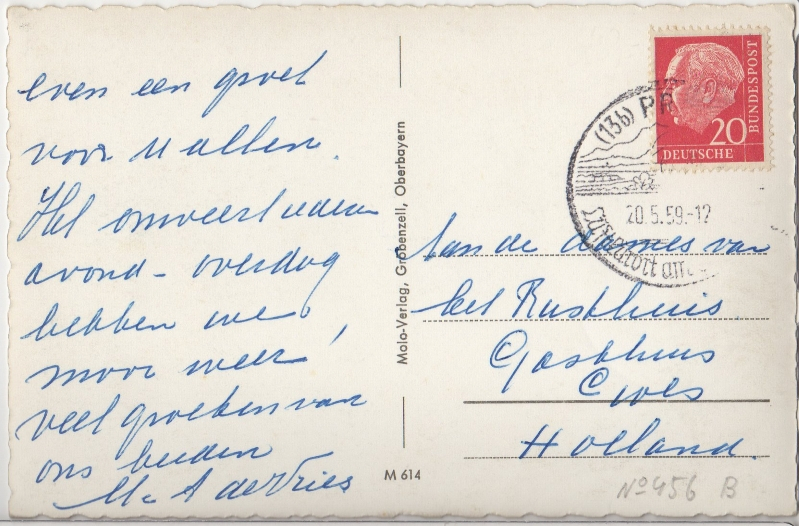 even een groet
voor U allen.
Het onweert iedere
avond - overdag
hebben we
mooi weer!
veel groeten van
ons beiden
A de Vries
Molo-Verlag, Gröbenzell, Oberbayern
M 614
DEUTSCHE
BUNDESPOST
20
(13b) PR
20.5.59.-12
Luftkurort am
Aan de dames van
het Rusthuis
Gasthuis
Holland.
Nº 456 B